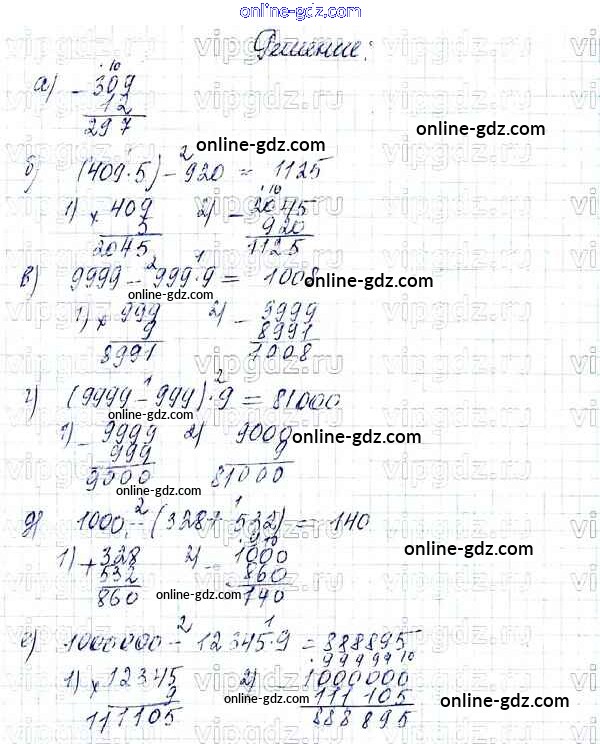 online-gdz.com
Решение:
а) - 309
12
297
online-gdz.com
online-gdz.com
б) (409·5) - 920 = 1125
1) × 409 2) - 2045
5 920
2045 1125
online-gdz.com
в) 9999 - 999·9 = 1008
online-gdz.com
online-gdz.com
1) × 999 2) - 9999
9 8991
8991 1008
online-gdz.com
г) (9999 - 999)·9 = 81000
online-gdz.com
1) - 9999 2) 9000
999 9
9000 81000
online-gdz.com
online-gdz.com
д) 1000 - (328+532) = 140
online-gdz.com
1) + 328 2) - 1000
532 860
860 140
online-gdz.com
е) 1000000 - 12345·9 = 888895
1) × 12345 2) - 1000000
9 111 105
111105 888 895
online-gdz.com
online-gdz.com